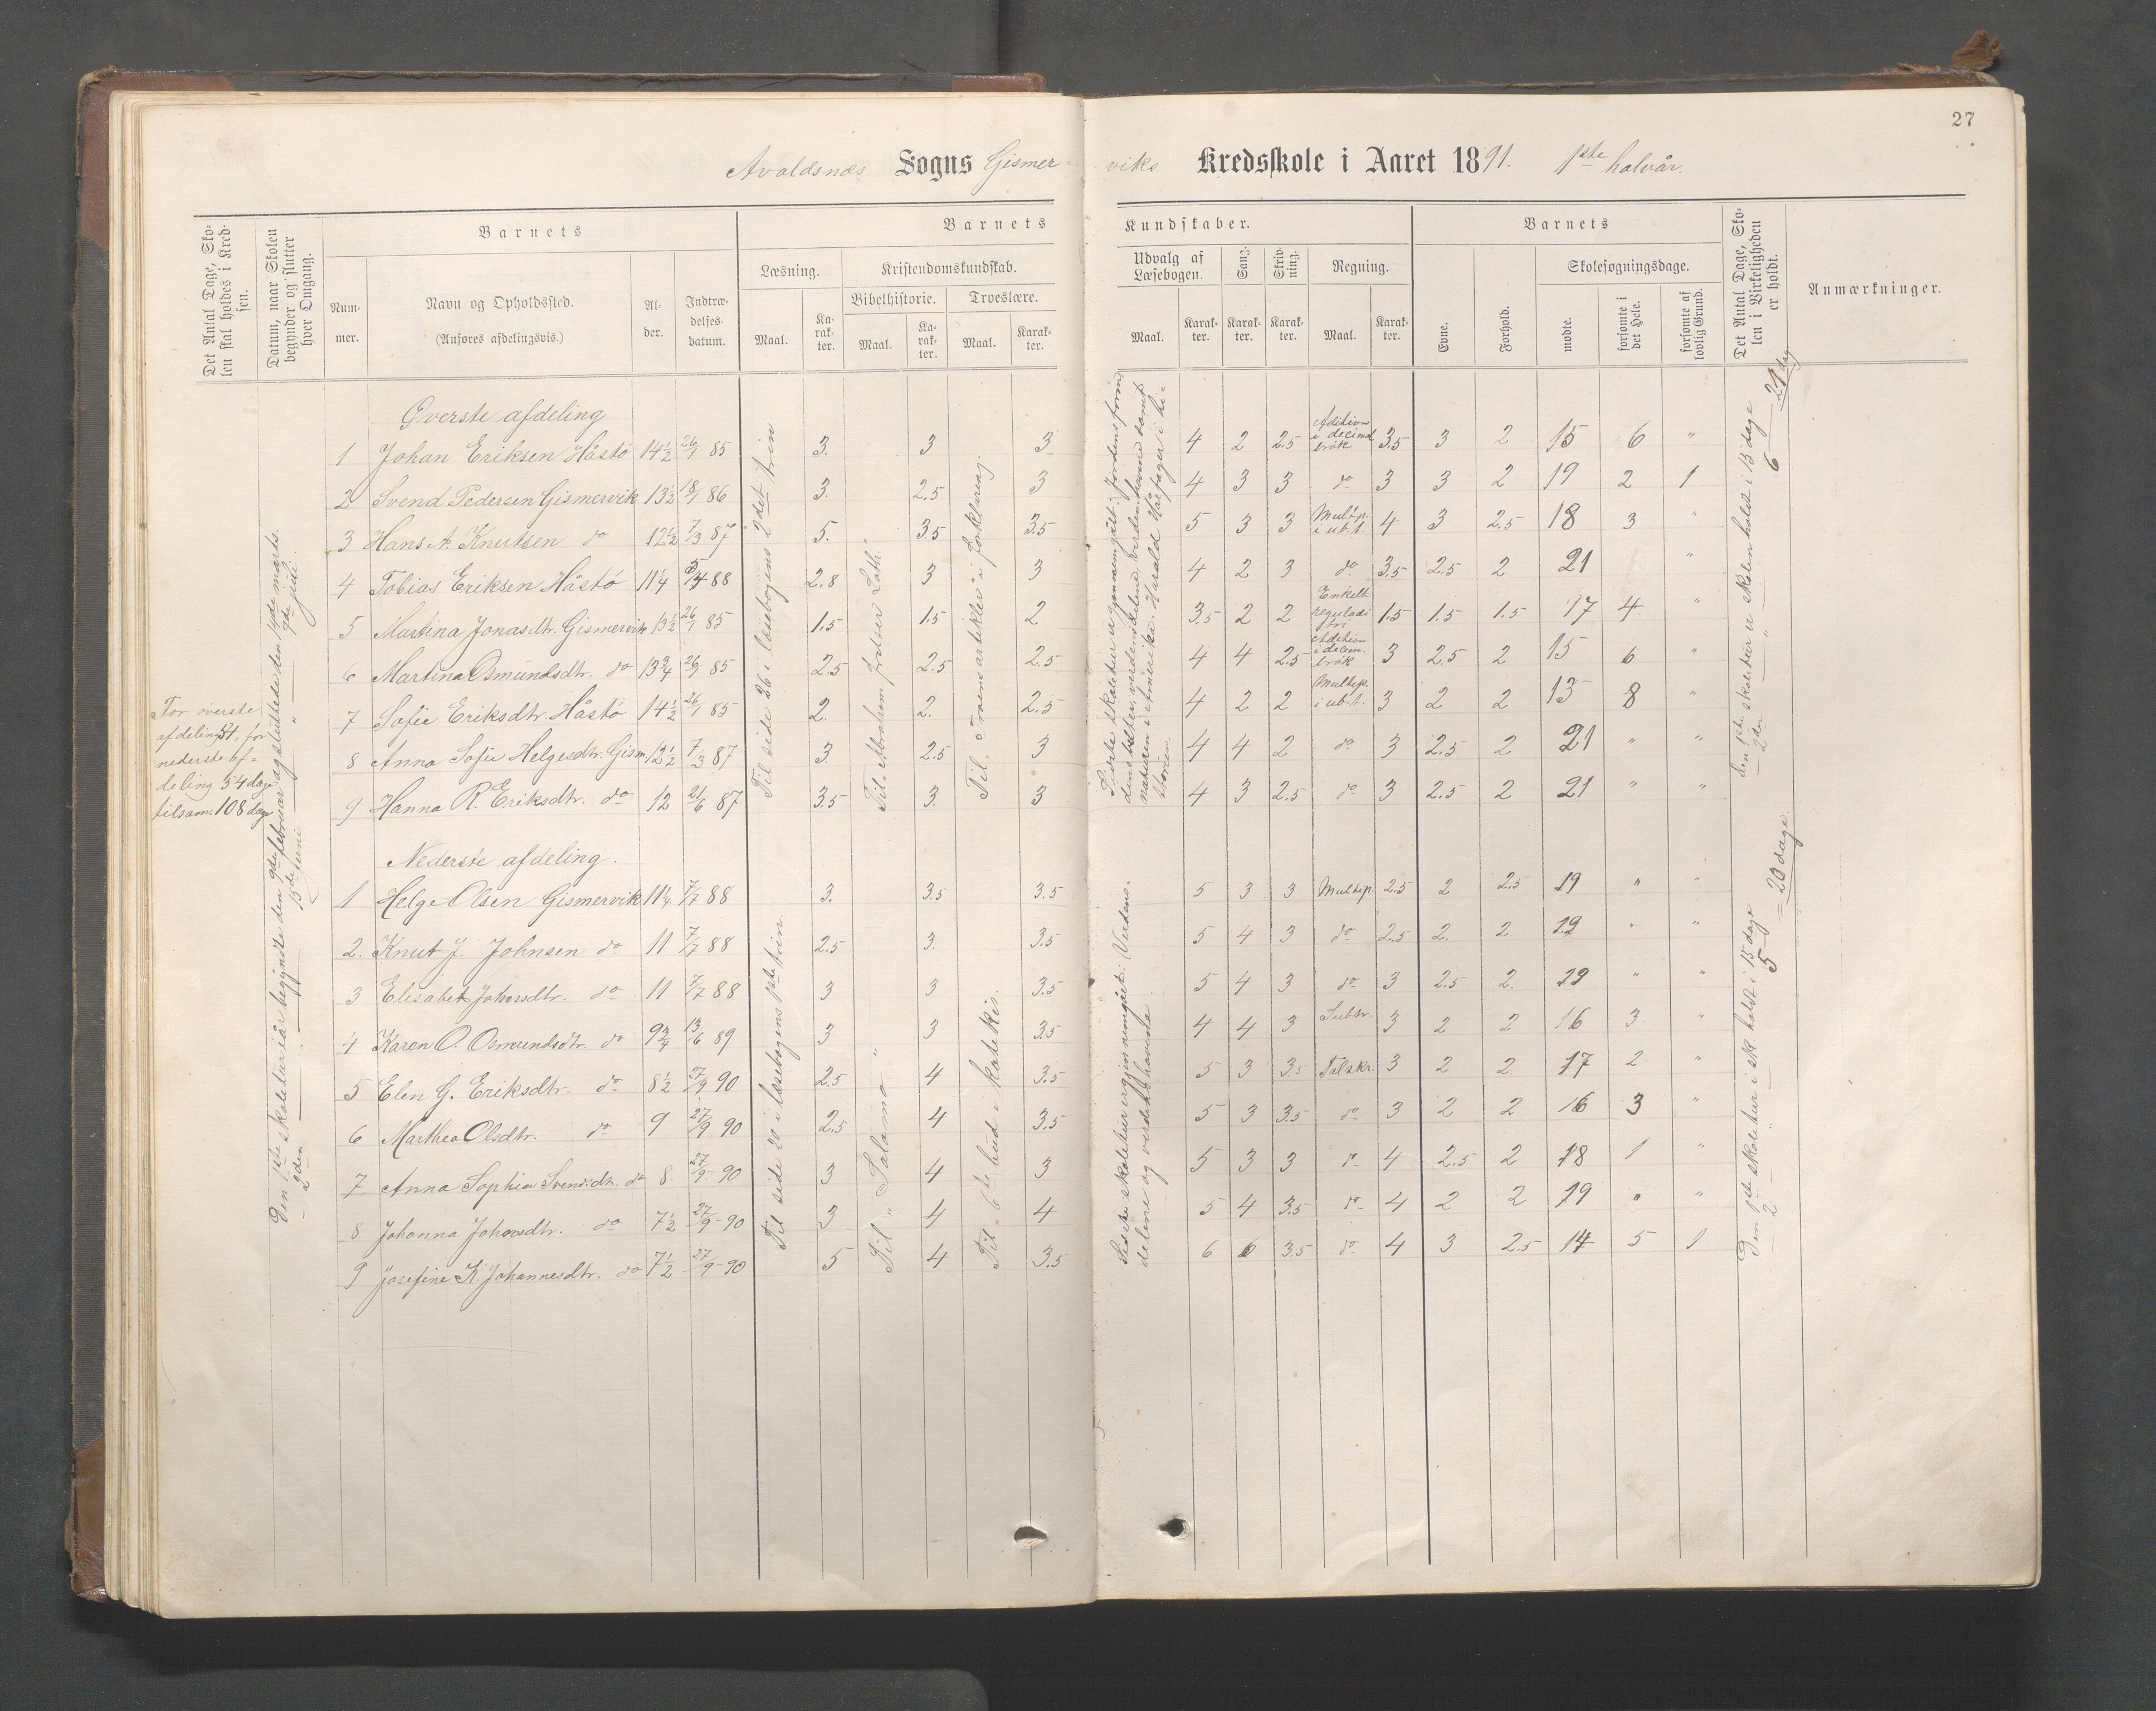 27
Avaldsnes Sogns Gismer-viks Kredsskole i Aaret 1891. 1ste halvår.
Det Antal Dage, Skolen skal holdes i Kredsen.
Datum, naar Skolen begynder og slutter hver Omgang.
Barnets
Nummer.
Navn og Opholdssted.
(Anføres afdelingsvis.)
Alder.
Indtrædelsesdatum.
Barnets Kundskaber.
Læsning.
Maal.
Karakter.
Kristendomskundskab.
Bibelhistorie.
Maal.
Karakter.
Troeslære.
Maal.
Karakter.
Udvalg af Læsebogen.
Maal.
Karakter.
Sang.
Karakter.
Skrivning.
Karakter.
Regning.
Maal.
Karakter.
Barnets
Evne.
Forhold.
Skolesøgningsdage.
mødte.
forsømte i det Hele.
forsømte af lovlig Grund.
Det Antal Dage, Skolen i Virkeligheden er holdt.
Anmærkninger.
For øverste
afdeling 54, for
nederste af-
deling 54 dage
tilsam. 108 dage
Den 1ste skoletur i år begynte den 9de februar og sluttede den 14de marts.
2den " 15de juni " 7de juli.
Øverste afdeling
1 Johan Eriksen Håstø 14½ 26/1 85 3. 3 3 4 2 2.5 Adition i decimal brøk 3.5 3 2 15 6 "
2 Svend Pedersen Gismervik 13½ 18/1 86 3. 2.5 3 4 3 3 do 3 3 2 19 2 1
3 Hans A. Knutsen do 12½ 7/3 87 5. 3.5 3.5 5 3 3 Multip. i ub.t. 4 3 2.5 18 3 "
4 Tobias Eriksen Håstø 11¼ 5/4 88 2.8 3 3 4 2 3 do 3.5 2.5 2 21 "
5 Martina Jonasdtr. Gismervik 13½ 26/1 85 1.5 1.5 2 3.5 2 2 Enkelt reguladetri 1.5 1.5 1.5 17 4 "
6 Martina Osmundsdtr. do 13¾ 26/1 85 2.5 2.5 2.5 4 4 2.5 Adition i decim. brøk 3 2.5 2 15 6 "
7 Sofie Eriksdtr. Håstø 14½ 26/1 85 2. 2. 2.5 4 2 2 Multip. i ub.t. 3 2 2 13 8 "
8 Anna Sofie Helgesdtr. Gism. 12½ 7/3 87 3. 2.5 3 4 4 2 do 3 2.5 2 21 " "
9 Hanna R. Eriksdtr. do 12 21/6 87 3.5 3. 3 4 3 2.5 do 3 2.5 2 21 " "
Til side 26 i læsebogens 2det trin
Til "Abraham frelser Loth."
Til "troens artikler" i forklaring.
naturen i Amerika. Harald Hårfager i hi-
storien.
den 1ste skoletur er skolen holdt i 15 dage
2den " 6
21 dag
Nederste afdeling.
1 Helge Olsen Gismervik 11¼ 7/7 88 3. 3.5 3.5 5 3 3 Multip. 2.5 2 2.5 19 " "
2. Knut J. Johnsen do 11 7/7 88 2.5 3. 3.5 5 4 3 do 2.5 2. 2 19 " "
3 Elisabet Johnsdtr. do 11 7/7 88 3 3 3.5 5 4 3 do 3 2.5 2. 19 " "
4 Karen O. Osmundsdtr. do 9¾ 13/6 89 3 3 3.5 4 4 3 Subtr. 3 2 2 16 3 "
5 Elen G. Eriksdtr. do 8½ 27/9 90 2.5 4 3.5 5 3 3.5 Talskr. 3 2 2 17 2 "
6 Marthea Olsdtr. do 9 27/9 90 2.5 4 3.5 5 3 3.5 do 3 2 2 16 3 "
7 Anna Sophia Svendsdtr. do 8. 27/9-90 3 4 3 5 3 3 do 4 2.5 2 18 1 "
8 Johanna Johnsdtr. do 7½ 27/9-90 3 4 4 5 4 3.5 do 4 2 2 19 " "
9 Josefine K. Johannesdtr. do 7½ 27/9-90 5 4 3.5 6 6 3.5 do 4 3 2.5 14 5 1
Til side 20 i læsebogens 1ste trin.
Til "Salamo"
Til 6te bud i katekis.
delene og verdenshavene
Den 1ste skoletur i sk holdt i 15 dage
2 " 5
= 20 dage.